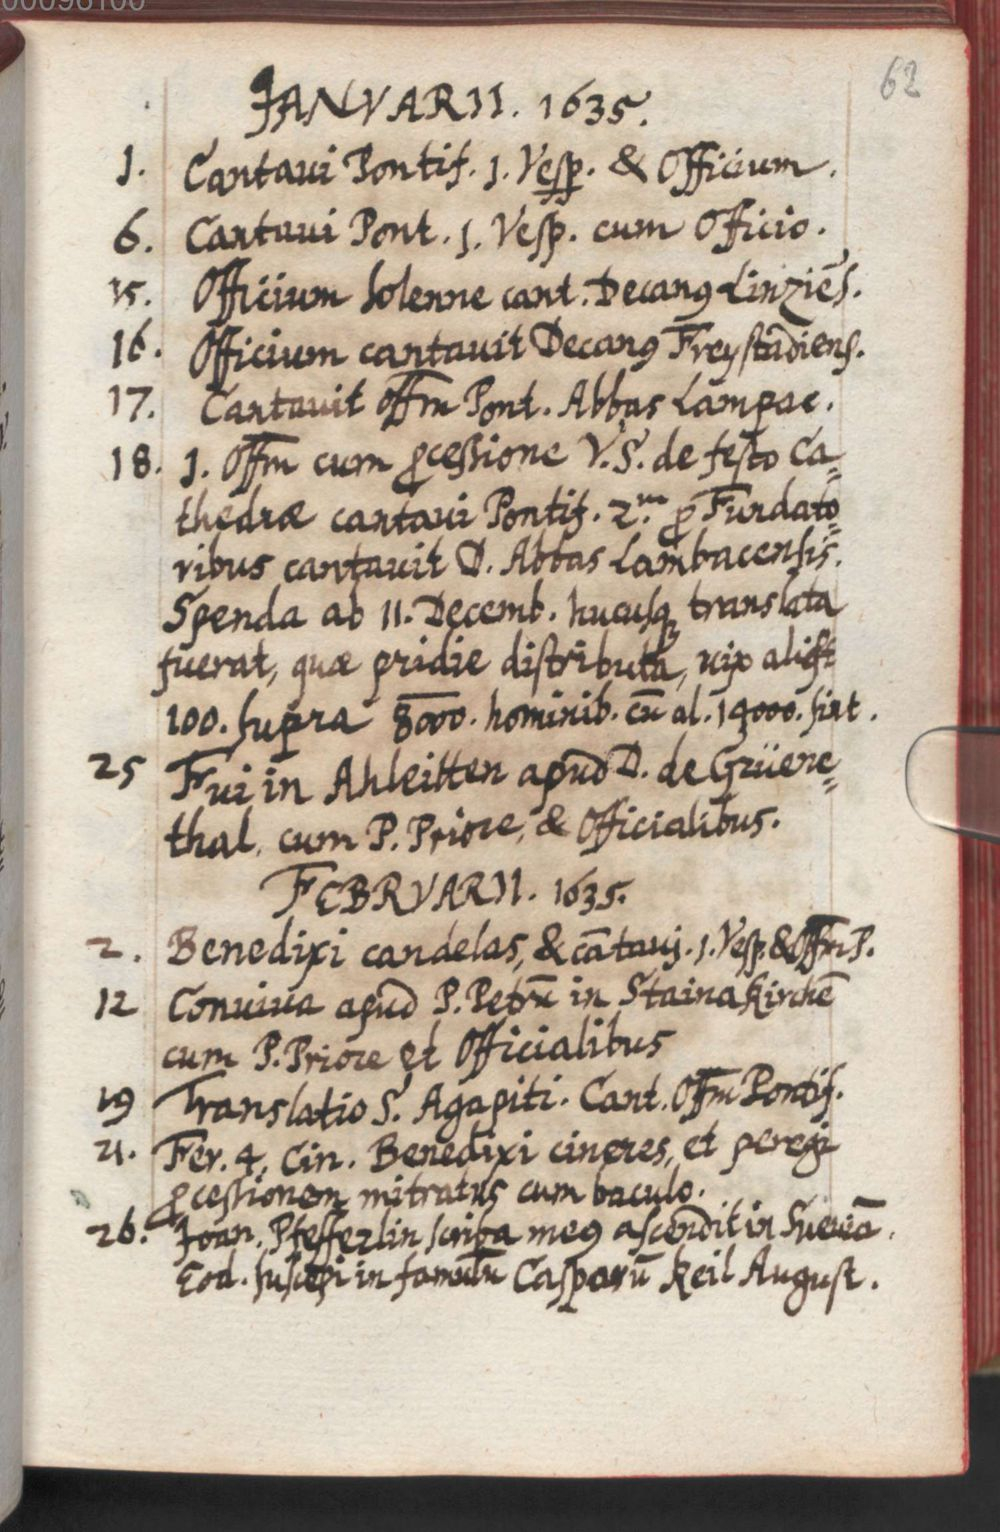 00096100
62
JANVARII. 1635.
1. Cantaui Pontif. 1. Vesp. & Officium.
6. Cantaui Pont. 1. Vesp. cum Officio.
15. Officium solenne cant. Decanꝰ Linziēs.
16. Officium cantauit Decanꝰ Freystadiens.
17. Cantauit Offm̄ Pont. Abbas Lampac.
18. 1. Offm̄ cum ꝓcessione V.S. de festo Ca=
thedræ cantaui Pontif. 2.m ꝓ Fundato=
ribus cantauit D. Abbas Lambacensis.
Spenda ab 11. Decemb. hucusqꝫ translata
fuerat, quæ pridie distributa, vix
100. supra 8000. hominib. cū al. 14000. sint.
25 Fui in Ahleitten apud D. de Grüene=
thal, cum P. Priore, & Officialibus.
FEBRVARII. 1635.
2. Benedixi candelas, & cātaui. 1. Vesp. & Offm̄ P.
12 Conuiua apud P. Petrū in Stainakirchē
cum P. Priore et Officialibus
19 Translatio S. Agapiti. Cant. Offm̄ Pontif.
21. Fer. 4. Cin. Benedixi cineres, et peregi
ꝓcessionem mitratus cum baculo.
26. Joan. Pfefferlin scriba meꝰ ascendit in Sueuiā.
Eod. suscepi in famulū Casparū Keil August.